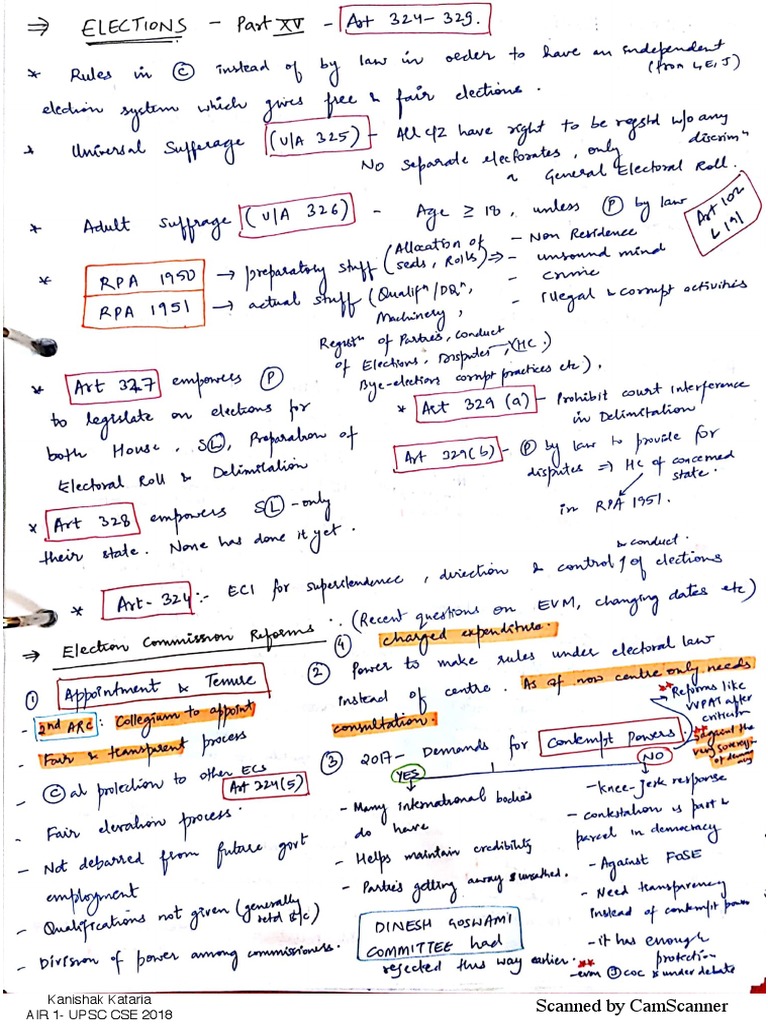 ⇒ ELECTIONS - Part XV - Art 324-329.
* Rules in Ⓒ instead of by law in order to have an independent
(from L, E, J)
election system which gives free & fair elections.
* Universal Sufferage (U/A 325) - All c/z have right to be regstd w/o any
discrimⁿ
No separate electorates, only
a General Electoral Roll.
* Adult Suffrage (U/A 326) - Age ≥ 18, unless Ⓟ by law
Art 102
& 191
- Non Residence
- unsound mind
- Crime
- Illegal & corrupt activities
* RPA 1950 → preparatory stuff (Allocation of
seats, Rolls) ⇒
RPA 1951 → actual stuff (Qualifⁿ/DQⁿ,
Machinery,
Registⁿ of Parties, Conduct
of Elections, Disputes, (HC)
Bye-elections corrupt practices etc).
* Art 327 empowers Ⓟ
to legislate on elections for
both House, SⓁ, Preparation of
Electoral Roll & Delimitation
* Art 329 (a) - Prohibit court interference
in Delimitation
Art 329(b) - Ⓟ by law to provide for
disputes ⇒ HC of concerned
state.
in RPA 1951.
* Art 328 empowers SⓁ - only
their state. None has done it yet.
* Art-324:- ECI for superintendence, direction & control of elections
& conduct.
(Recent questions on EVM, changing dates etc)
⇒ Election Commission Reforms:
④ charged expenditure.
① Appointment & Tenure
- 2nd ARC: Collegium to appoint
- Fair & transparent process
- Ⓒal protection to other ECs
Art 324(5)
- Fair elevation process.
- Not debarred from future govt
employment
- Qualifications not given (generally
retd
- Division of power among commissioners.
② Power to make rules under electoral law
instead of centre. As of now centre only needs
consultation.
** Reforms like
VVPAT after
criticism
** against the
very
of democracy
③ 2017 - Demands for Contempt Powers.
YES
NO
- Many international bodies
do have
- Helps maintain credibility
- Parties getting away unscathed.
DINESH GOSWAMI
COMMITTEE had
rejected this way earlier.
- knee-jerk response
- contestation is part &
parcel in democracy
- Against FoSE
- Need transparency
instead of contempt power
- it has enough
protection
** - even Ⓙ COC is under debate
Kanishak Kataria
AIR 1- UPSC CSE 2018
Scanned by CamScanner